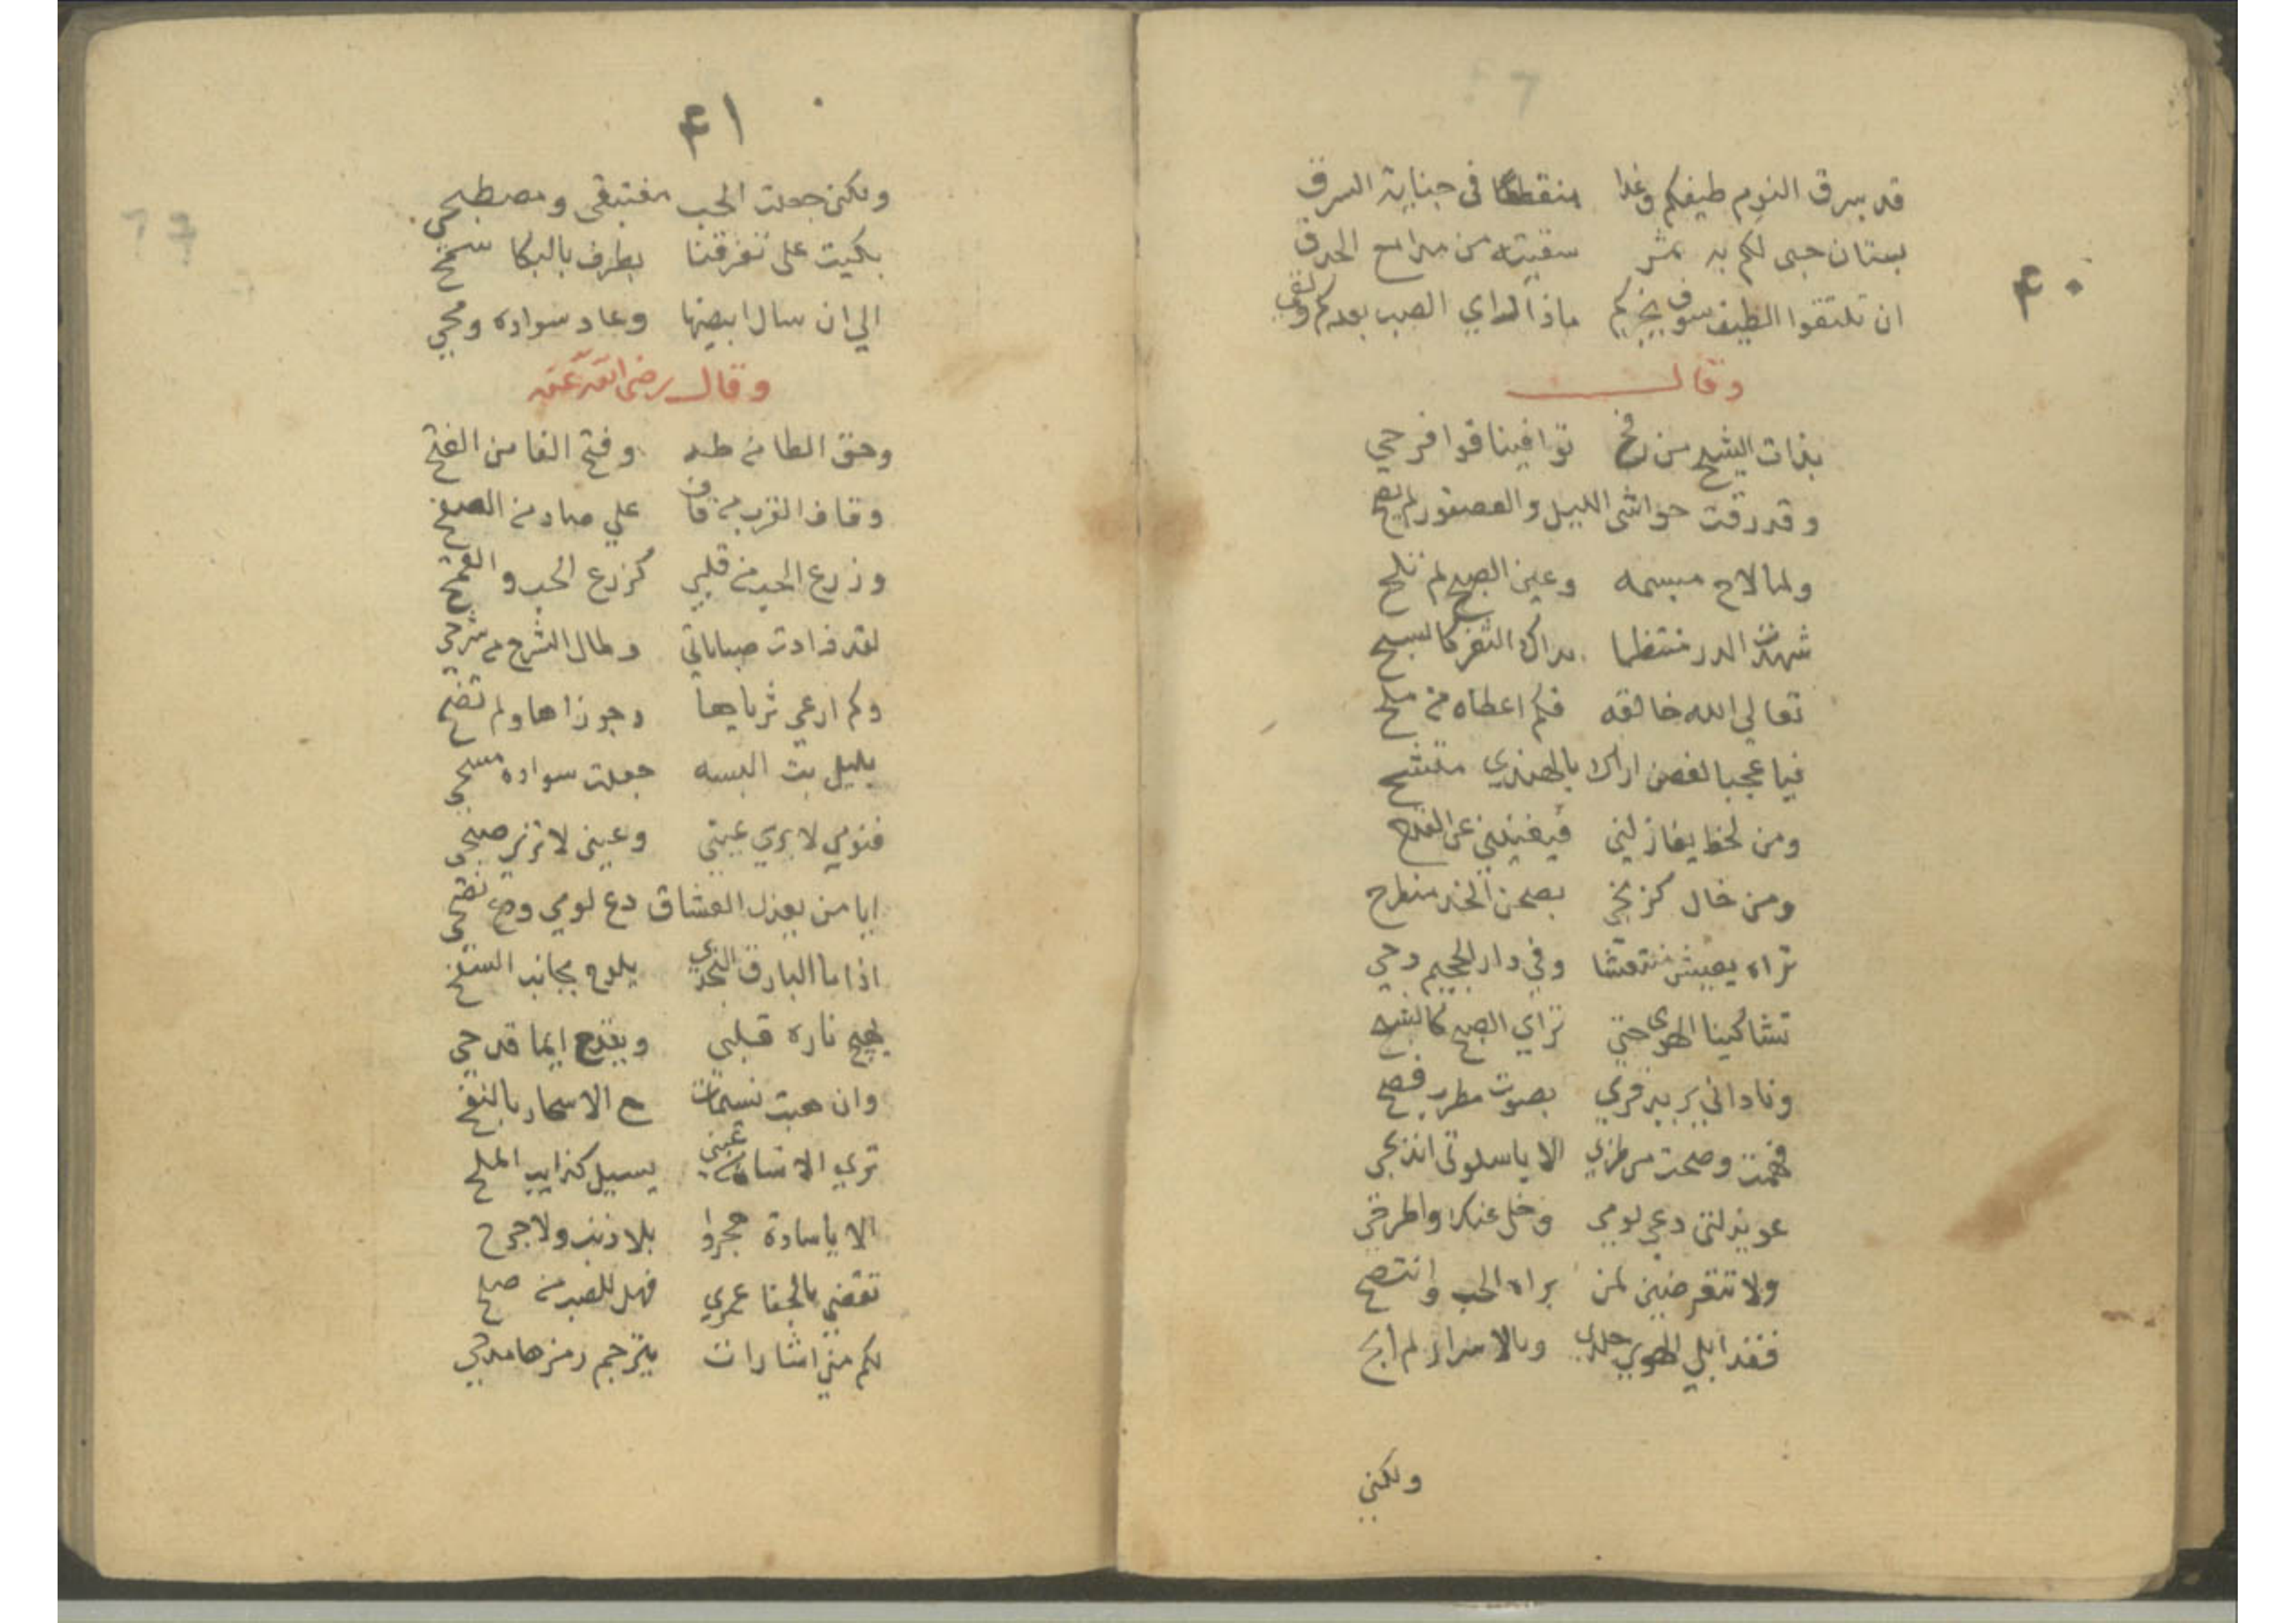 ٤٠
قد يسرق النوم طيفكم وغدا منقطعا في جناية السرق
بستان حبى لكم به ثمر سقيته من مدامع الحدق
ان تلتقوا الطيف سوف يخبركم ماذا الراي الصب بعدكم ولقي
وقال
بذات الشيح من توافينا قوا فرحي
وقد رقت حواشى الليل والعصفور لم يصح
ولما لاح مبسمه وعين الصبح لم تلح
شهدت الدر منتظما بداك الثغر كالسبح
تعالي الله خالقه فكم اعطاه من ملح
فيا عجبا لغصن اراك بالهندي متشح
ومن لحظ يغازلني فيغنيني عن القدح
ومن خال كزنجي بصحن الخد منطرح
تراه يعيش منتعشا وفي دار الجحيم دحي
تشاكينا الهوى حتى تراي الصبح كالشبح
وناداني بصوت مطرب فصح
فهمت وصحت من طربي الا يا سلوتى انتزحي
عويذلتى دعي لومي وخل عنك واطرحي
ولا تتعرضين لمن براه الحب وانتصح
فقد ابلي الهوي جلدي وبالاسرار لم ابح
ولكني
٤١
ولكني جعلت الحب مغتبقى ومصطبحي
بكيت على تفرقنا بطرف بالبكا سمح
الي ان سال ابيضها وعاد سواده ومحي
وقال رضى الله عنه
وحق الطا من طه وفتح الفا من الفتح
وقاف القرب من قاف علي صاد من الصفح
وزرع الحب من قلبي كزرع الحب والقمح
لقد زادت صباباتي وطال الشرح من شرحي
وكم ارعي ثرياها وجوزاها ولم تضح
بليل بت البسه جعلت سواده مسحي
فنومي لا يري عيني وعيني لا تري صبحي
ايا من يعذل العشاق دع لومي ودع نصحي
اذا ما البارق النجدي يلوح بجانب السفح
يهيج ناره قلبي ويقدح ايما قدحي
وان هبت نسيمات مع الاسحار بالنفح
تري الانسان من عيني يسيل كذايب الملح
الا يا سادة هجروا بلا ذنب ولا جرح
تقضي بالجفا عمري فهل للصب من صلح
لكم مني اشارات يترجم رمزها مدحي